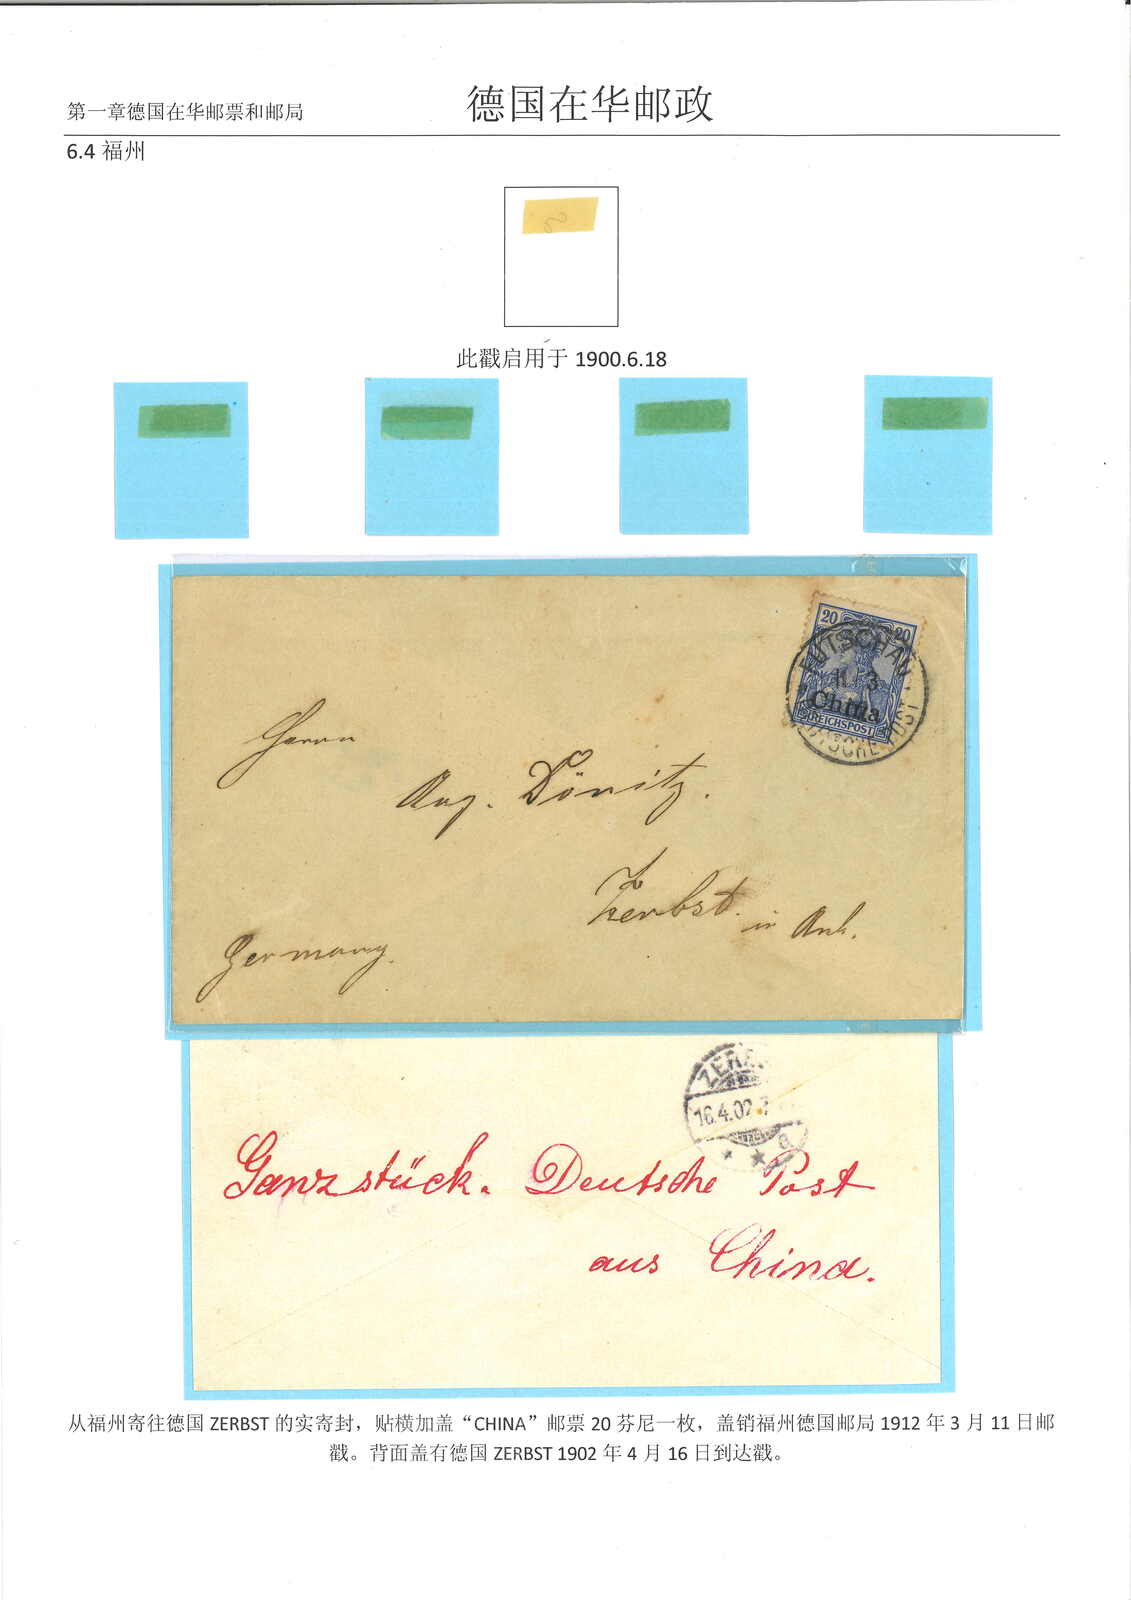 第一章德国在华邮票和邮局
德国在华邮政
6.4 福州
此戳启用于 1900.6.18
20 20
FUTSCHAU
11 3
China
REICHSPOST
DEUTSCHE POST
Herrn
Aug. Dönitz.
Zerbst. in Anh.
Germany.
ZERBST
16.4.02.
Ganzstück. Deutsche Post
aus China.
从福州寄往德国 ZERBST 的实寄封，贴横加盖“CHINA”邮票 20 芬尼一枚，盖销福州德国邮局 1912 年 3 月 11 日邮
戳。背面盖有德国 ZERBST 1902 年 4 月 16 日到达戳。